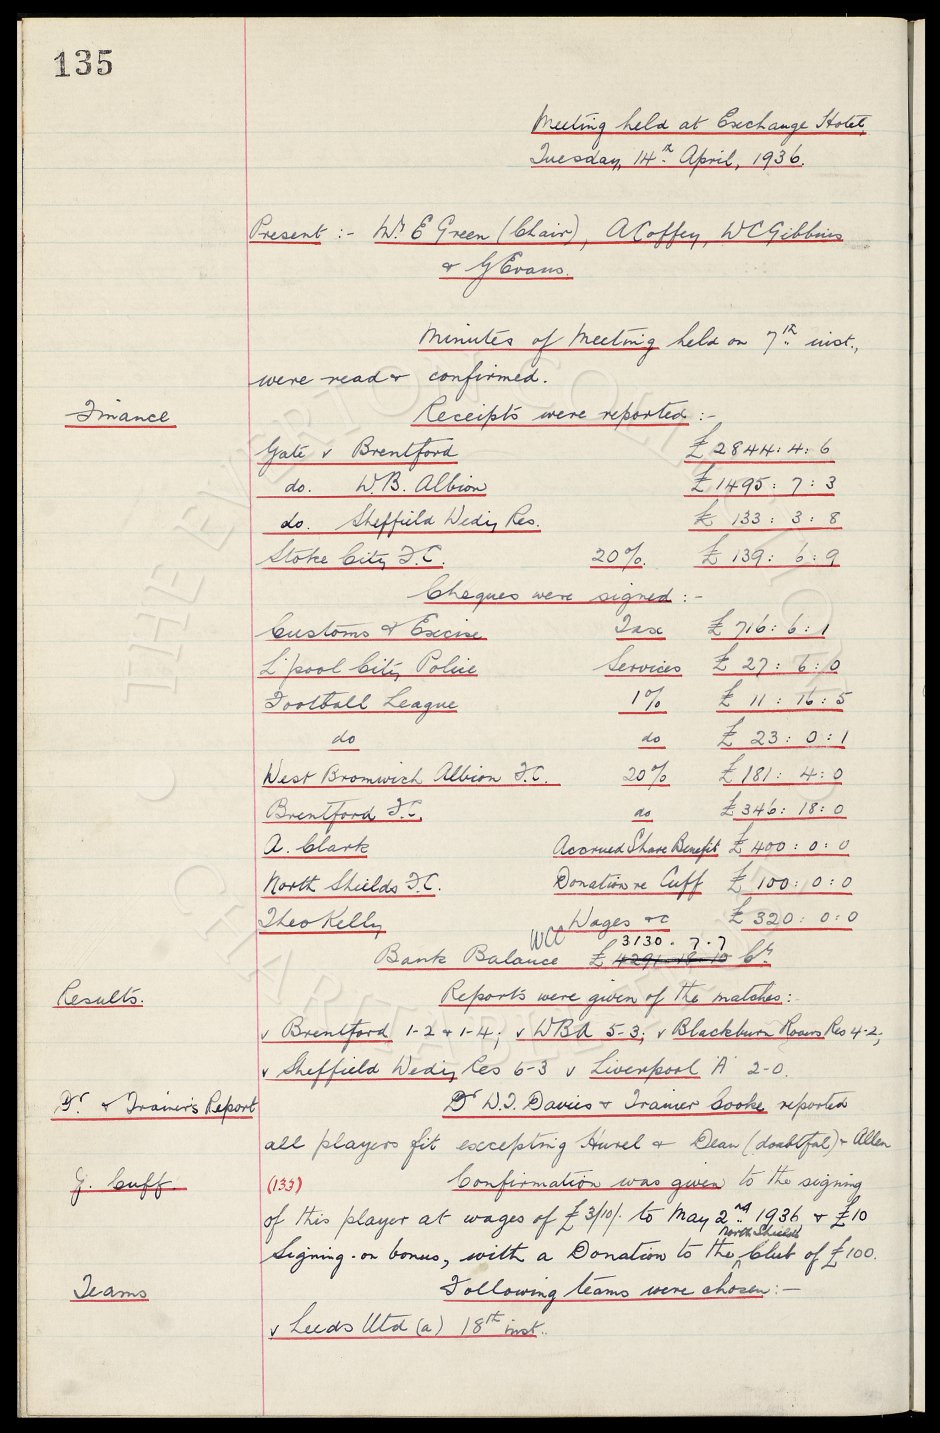 135
Meeting held at Exchange Hotel,
Tuesday, 14th April, 1936.
Present :- Mr E Green (Chair), A Coffey, W C Gibbins
& G Evans.
Minutes of Meeting held on 7th inst.,
were read & confirmed.
Finance Receipts were reported :-
Gate v Brentford £2844: 4: 6
do. W.B. Albion £1495: 7: 3
do. Sheffield Wedy Res. £ 133: 3: 8
Stoke City F.C. 20%. £ 139: 6: 9
Cheques were signed :-
Customs & Excise Tax £ 716: 6: 1
L'pool City Police Services £ 27: 6: 0
Football League 1% £ 11: 16: 5
do do £ 23: 0: 1
West Bromwich Albion F.C. 20% £181: 4: 0
Brentford F.C. do £346: 18: 0
A. Clark Accrued Share Benefit £ 400: 0: 0
North Shields F.C. Donation re Cuff £ 100: 0: 0
Theo Kelly Wages &c £ 320: 0: 0
WCC 3130. 7. 7
Bank Balance £ 4291. 18. 10 Cr
Results. Reports were given of the matches:-
v Brentford 1-2 & 1-4; v WBA 5-3; v Blackburn Rovers Res 4-2,
v Sheffield Wedy Res 6-3 v Liverpool 'A' 2-0.
Dr. & Trainer's Report Dr W.J. Davies & Trainer Cooke reported
all players fit excepting Hurel & Dean (doubtful) & Allen
J. Cuff. (133) Confirmation was given to the signing
of this player at wages of £3/10/- to May 2nd 1936 & £10
North Shields
Signing-on bonus, with a Donation to the Club of £100.
Teams Following teams were chosen :-
v Leeds Utd (a) 18th inst..
© THE EVERTON COLLECTION CHARITABLE TRUST